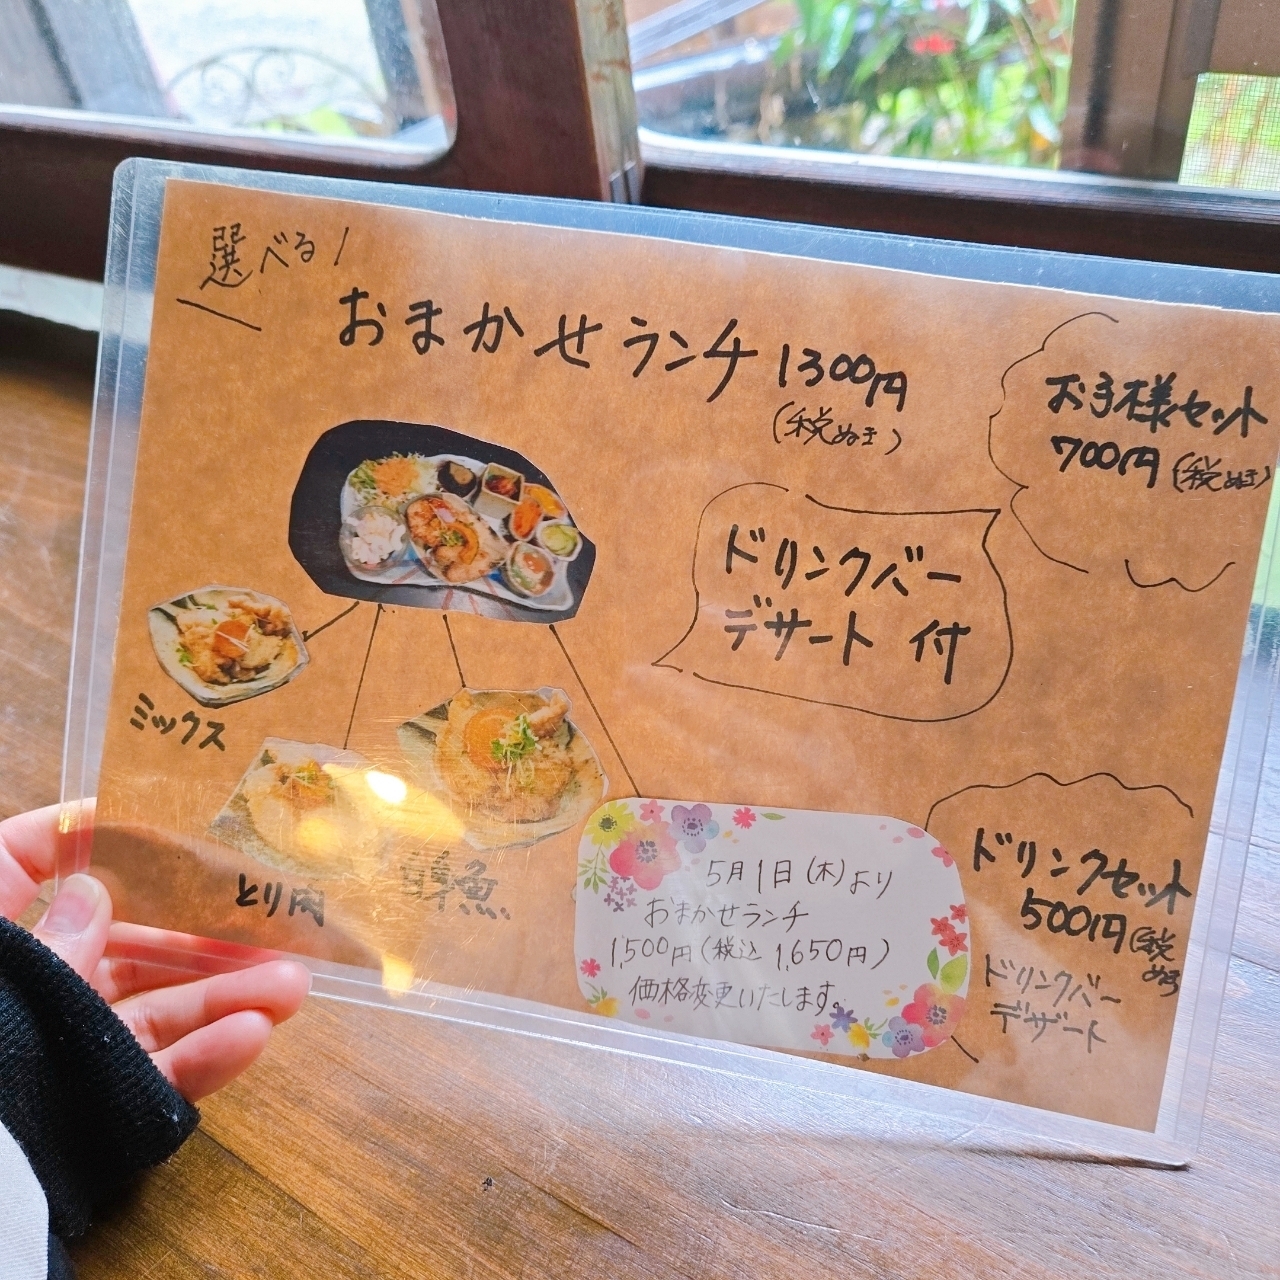 選べる!
おまかせランチ 1300円
(税ぬき)
お子様セット
700円(税ぬき)
ドリンクバー
デザート 付
ミックス
とり肉
鮮魚
ドリンクセット
500円(税
ぬき)
ドリンクバー
デザート
5月1日(木)より
おまかせランチ
1,500円(税込 1,650円)
価格変更いたします。